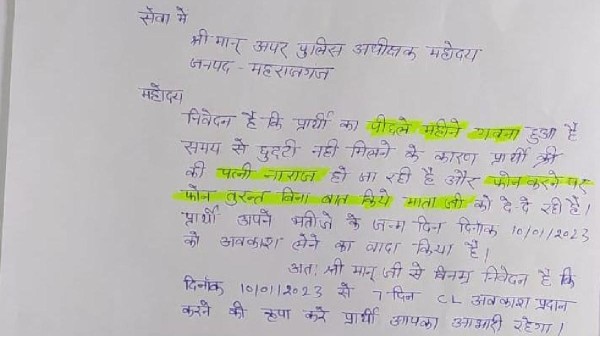 सेवा में
श्री मान् अपर पुलिस अधीक्षक महोदय
जनपद - महराजगंज
महोदय
निवेदन है कि प्रार्थी का पीछले महीने गवना हुआ है
समय से छुट्टी नही मिलने के कारण प्रार्थी श्री
की पत्नी नाराज हो जा रही है और फोन करने पर
फोन तुरन्त बिना बात किये माता जी को दे दे रही है।
प्रार्थी अपने भतीजे के जन्म दिन दिनांक 10/01/2023
को अवकाश लेने का वादा किया है।
अतः श्री मान् जी से विनम्र निवेदन है कि
दिनाँक 10/01/2023 से 7 दिन CL अवकाश प्रदान
करने की कृपा करे प्रार्थी आपका आभारी रहेगा।